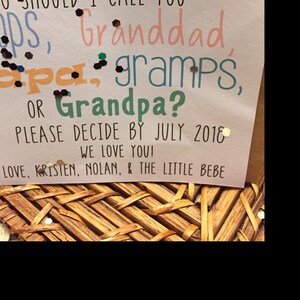 SHOULD I CALL YOU
Granddad,
gramps,
OR Grandpa?
PLEASE DECIDE BY JULY 2018
WE LOVE YOU!
LOVE, KRISTEN, NOLAN, & THE LITTLE BEBE